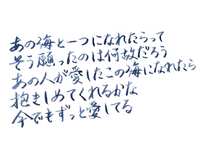 あの海と一つになれたらって
そう願ったのは何故だろう
あの人が愛したこの海になれたら
抱きしめてくれるかな
今でもずっと愛してる